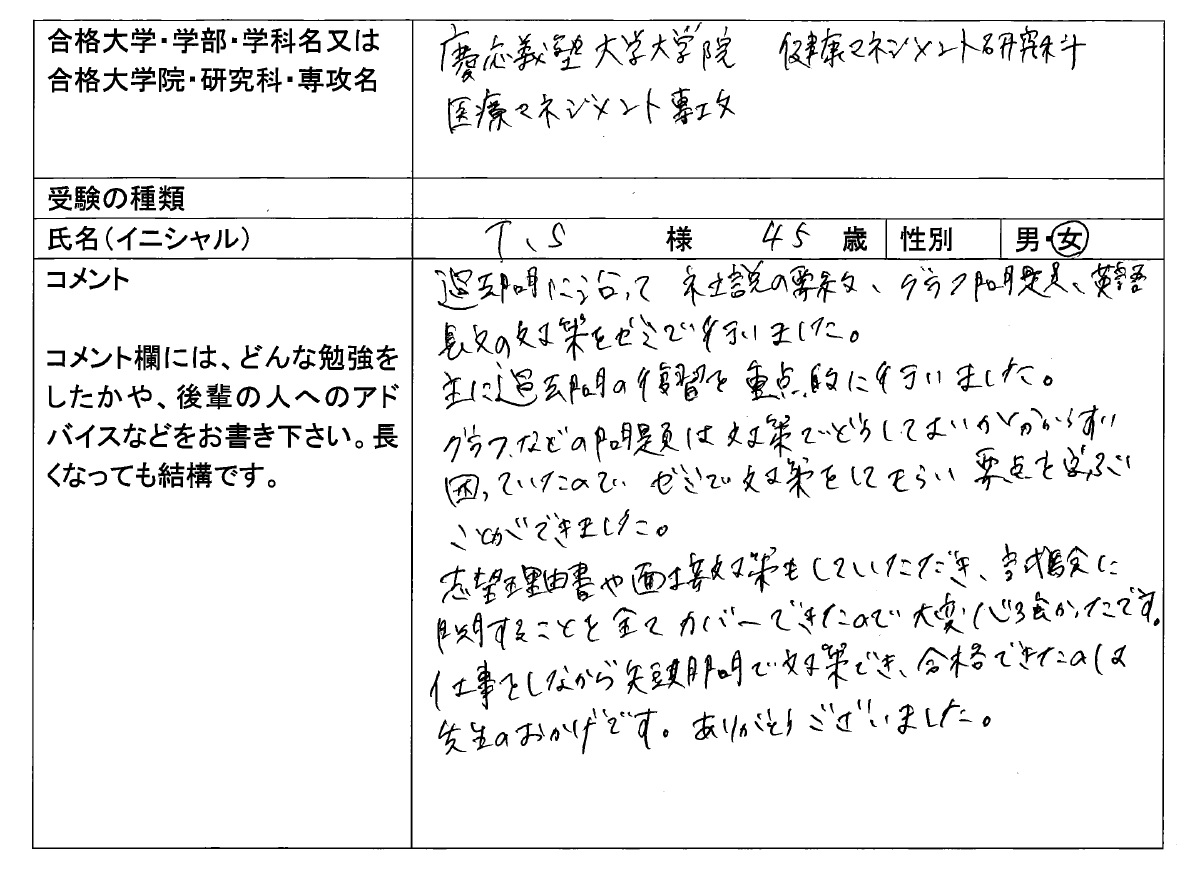 合格大学・学部・学科名又は
合格大学院・研究科・専攻名
慶応義塾大学大学院 健康マネジメント研究科
医療マネジメント専攻
受験の種類
氏名（イニシャル）
T、S 様 45 歳 性別 男・女
コメント
コメント欄には、どんな勉強を
したかや、後輩の人へのアド
バイスなどをお書き下さい。長
くなっても結構です。
過去問に沿って 社説の要約、グラフ問題、英語
長文の対策をゼミで行いました。
主に過去問の復習を重点的に行いました。
グラフなどの問題は対策でどうしてよいかわからずに
困っていたので、ゼミで対策をしてもらい 要点を学ぶ
ことができました。
志望理由書や面接対策もしていただき、試験に
関することを全てカバーできたので大変心強かったです。
仕事をしながら短期間で対策でき、合格できたのは
先生のおかげです。ありがとうございました。